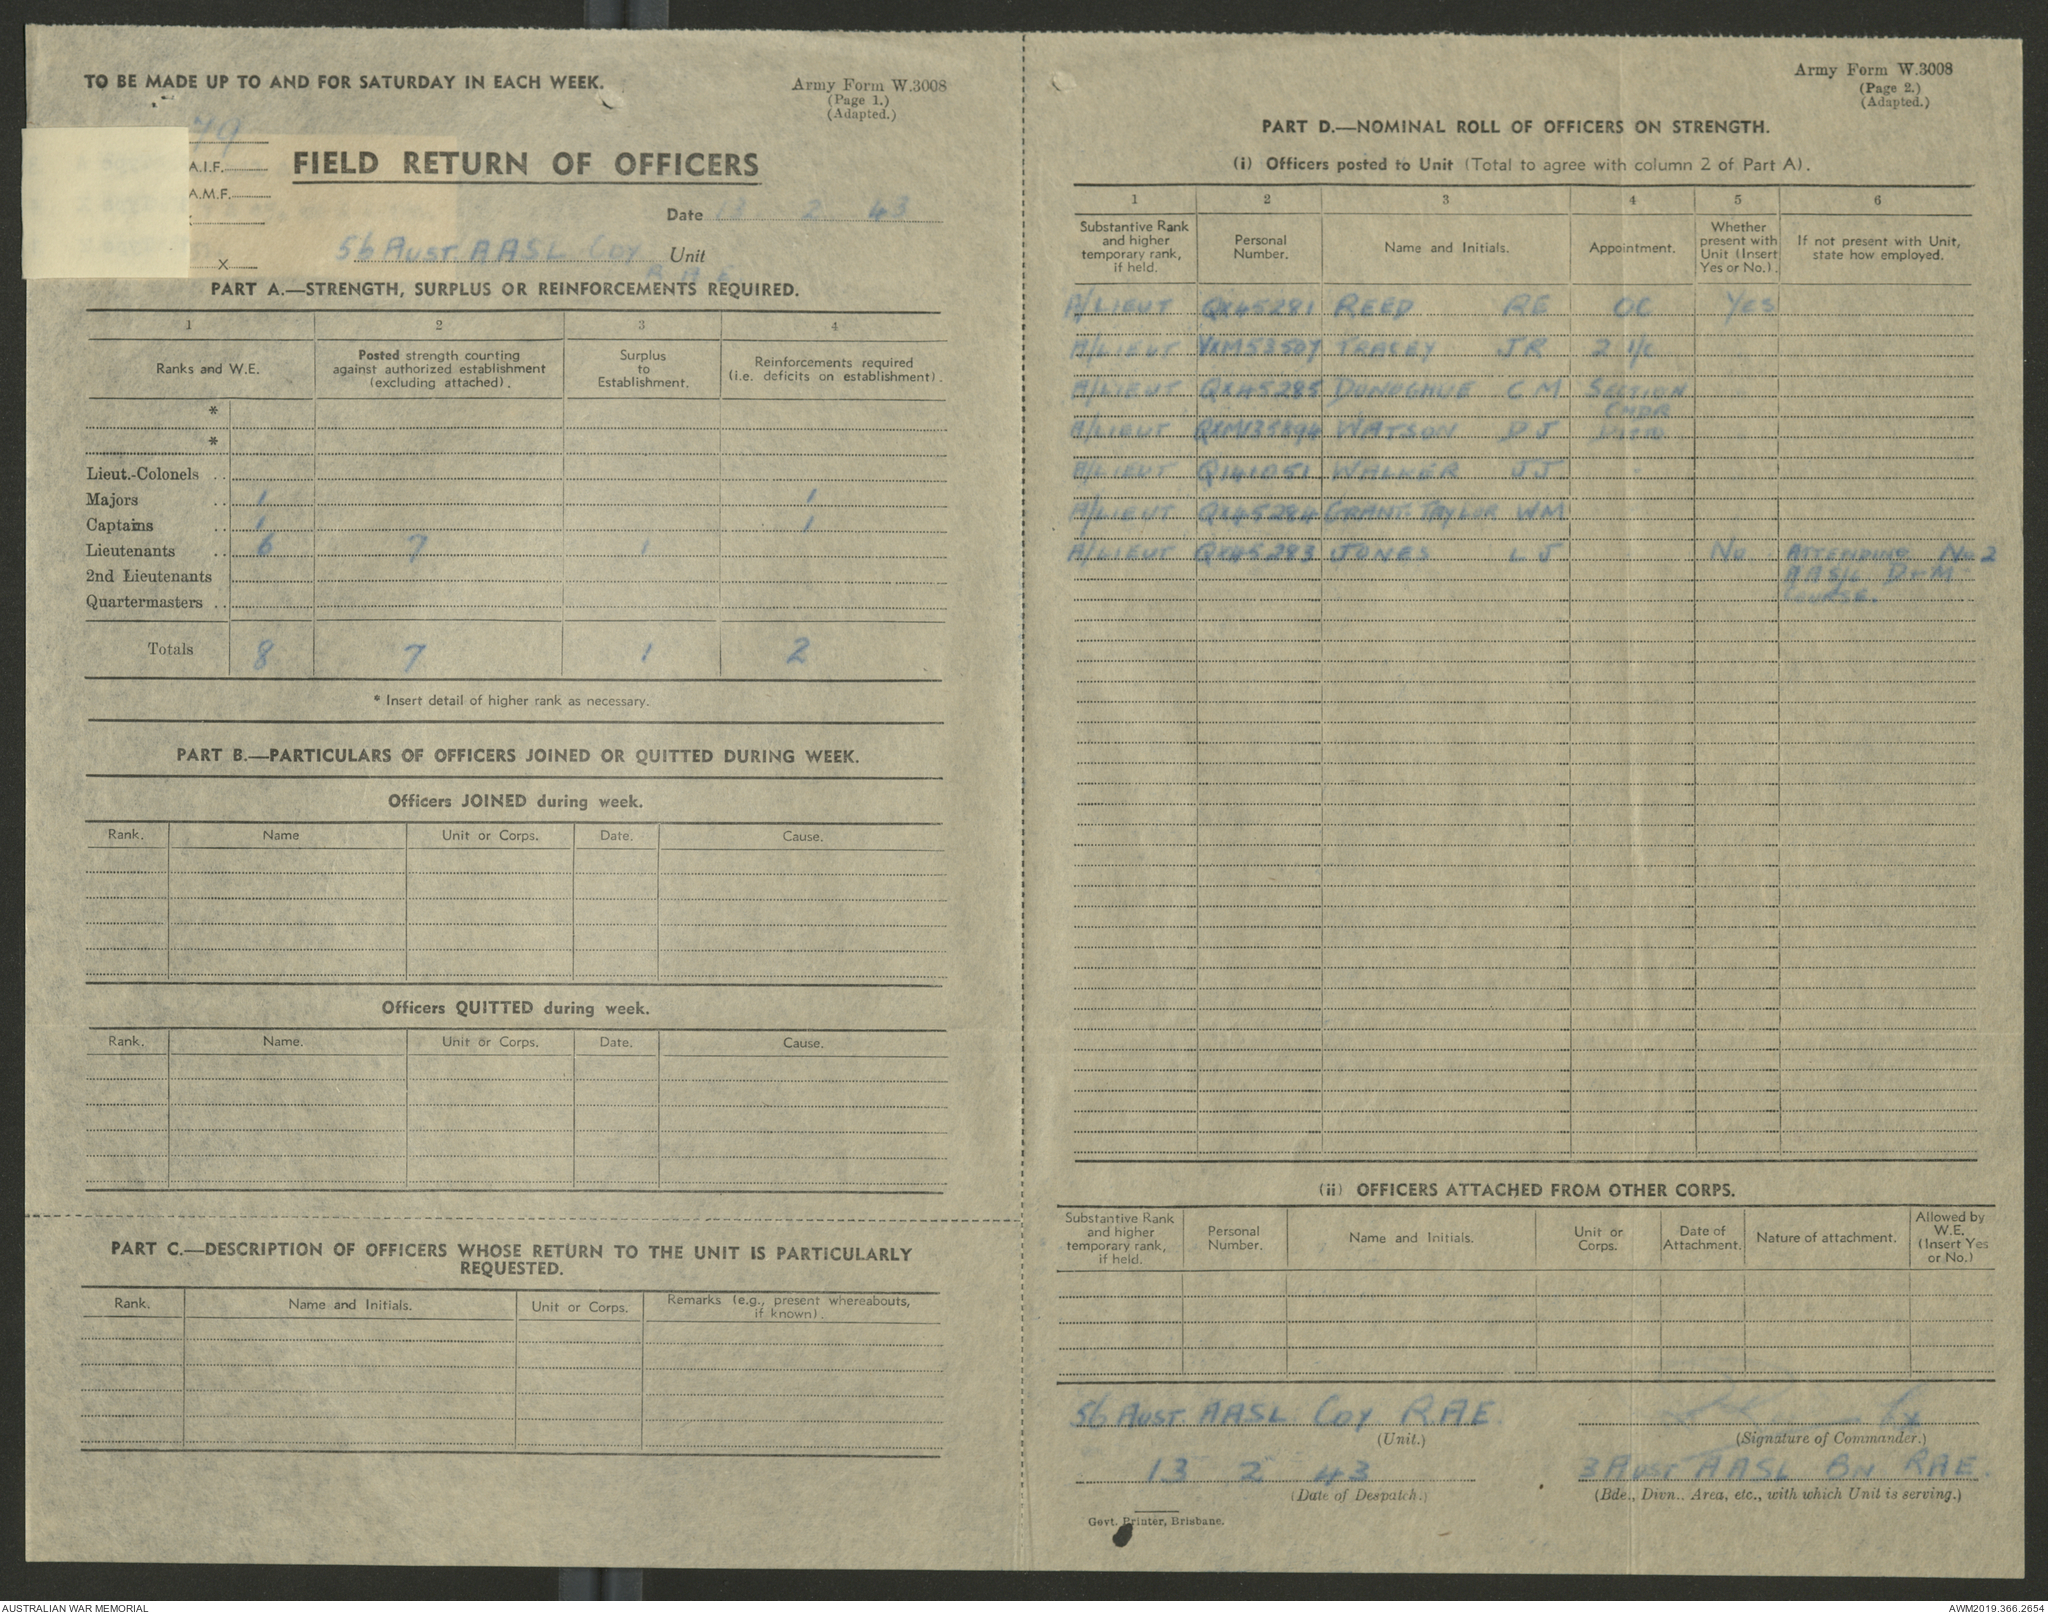 TO BE MADE UP TO AND FOR SATURDAY IN EACH WEEK.
Army Form W.3008
(Page 1.)
(Adapted.)
A.I.F.
A.M.F.
X
FIELD RETURN OF OFFICERS
Date 13 2 43
56 AUST AASL COY Unit
R A E
PART A.—STRENGTH, SURPLUS OR REINFORCEMENTS REQUIRED.
1 2 3 4
Ranks and W.E. Posted strength counting against authorized establishment (excluding attached). Surplus to Establishment. Reinforcements required (i.e. deficits on establishment).
*
*
Lieut.-Colonels ..
Majors .. 1 1
Captains .. 1 1
Lieutenants .. 6 7 1
2nd Lieutenants
Quartermasters ..
Totals 8 7 1 2
* Insert detail of higher rank as necessary.
PART B.—PARTICULARS OF OFFICERS JOINED OR QUITTED DURING WEEK.
Officers JOINED during week.
Rank. Name Unit or Corps. Date. Cause.
Officers QUITTED during week.
Rank. Name. Unit or Corps. Date. Cause.
PART C.—DESCRIPTION OF OFFICERS WHOSE RETURN TO THE UNIT IS PARTICULARLY
REQUESTED.
Rank. Name and Initials. Unit or Corps. Remarks (e.g., present whereabouts, if known).
Army Form W.3008
(Page 2.)
(Adapted.)
PART D.—NOMINAL ROLL OF OFFICERS ON STRENGTH.
(i) Officers posted to Unit (Total to agree with column 2 of Part A).
1 2 3 4 5 6
Substantive Rank and higher temporary rank, if held. Personal Number. Name and Initials. Appointment. Whether present with Unit (Insert Yes or No.). If not present with Unit, state how employed.
A/LIEUT QX45281 REED RE OC YES
A/LIEUT VXM53507 TRACEY JR 2 I/C
A/LIEUT QX45285 DONOGHUE C M SECTION
CMDR
A/LIEUT WATSON D J DITTO
A/LIEUT Q141051 WALKER JJ
A/LIEUT QX45284 GRANT-TAYLOR WM
A/LIEUT QX45283 JONES L J No ATTENDING No 2
AAS/L D+M
COURSE.
(ii) OFFICERS ATTACHED FROM OTHER CORPS.
Substantive Rank and higher temporary rank, if held. Personal Number. Name and Initials. Unit or Corps. Date of Attachment. Nature of attachment. Allowed by W.E. (Insert Yes or No.)
56 AUST. AASL COY R.A.E.
(Unit.) (Signature of Commander.)
13 2 43 3 AUST AASL BN RAE.
(Date of Despatch.) (Bde., Divn., Area, etc., with which Unit is serving.)
Govt. Printer, Brisbane.
AUSTRALIAN WAR MEMORIAL
AWM2019.366.2654